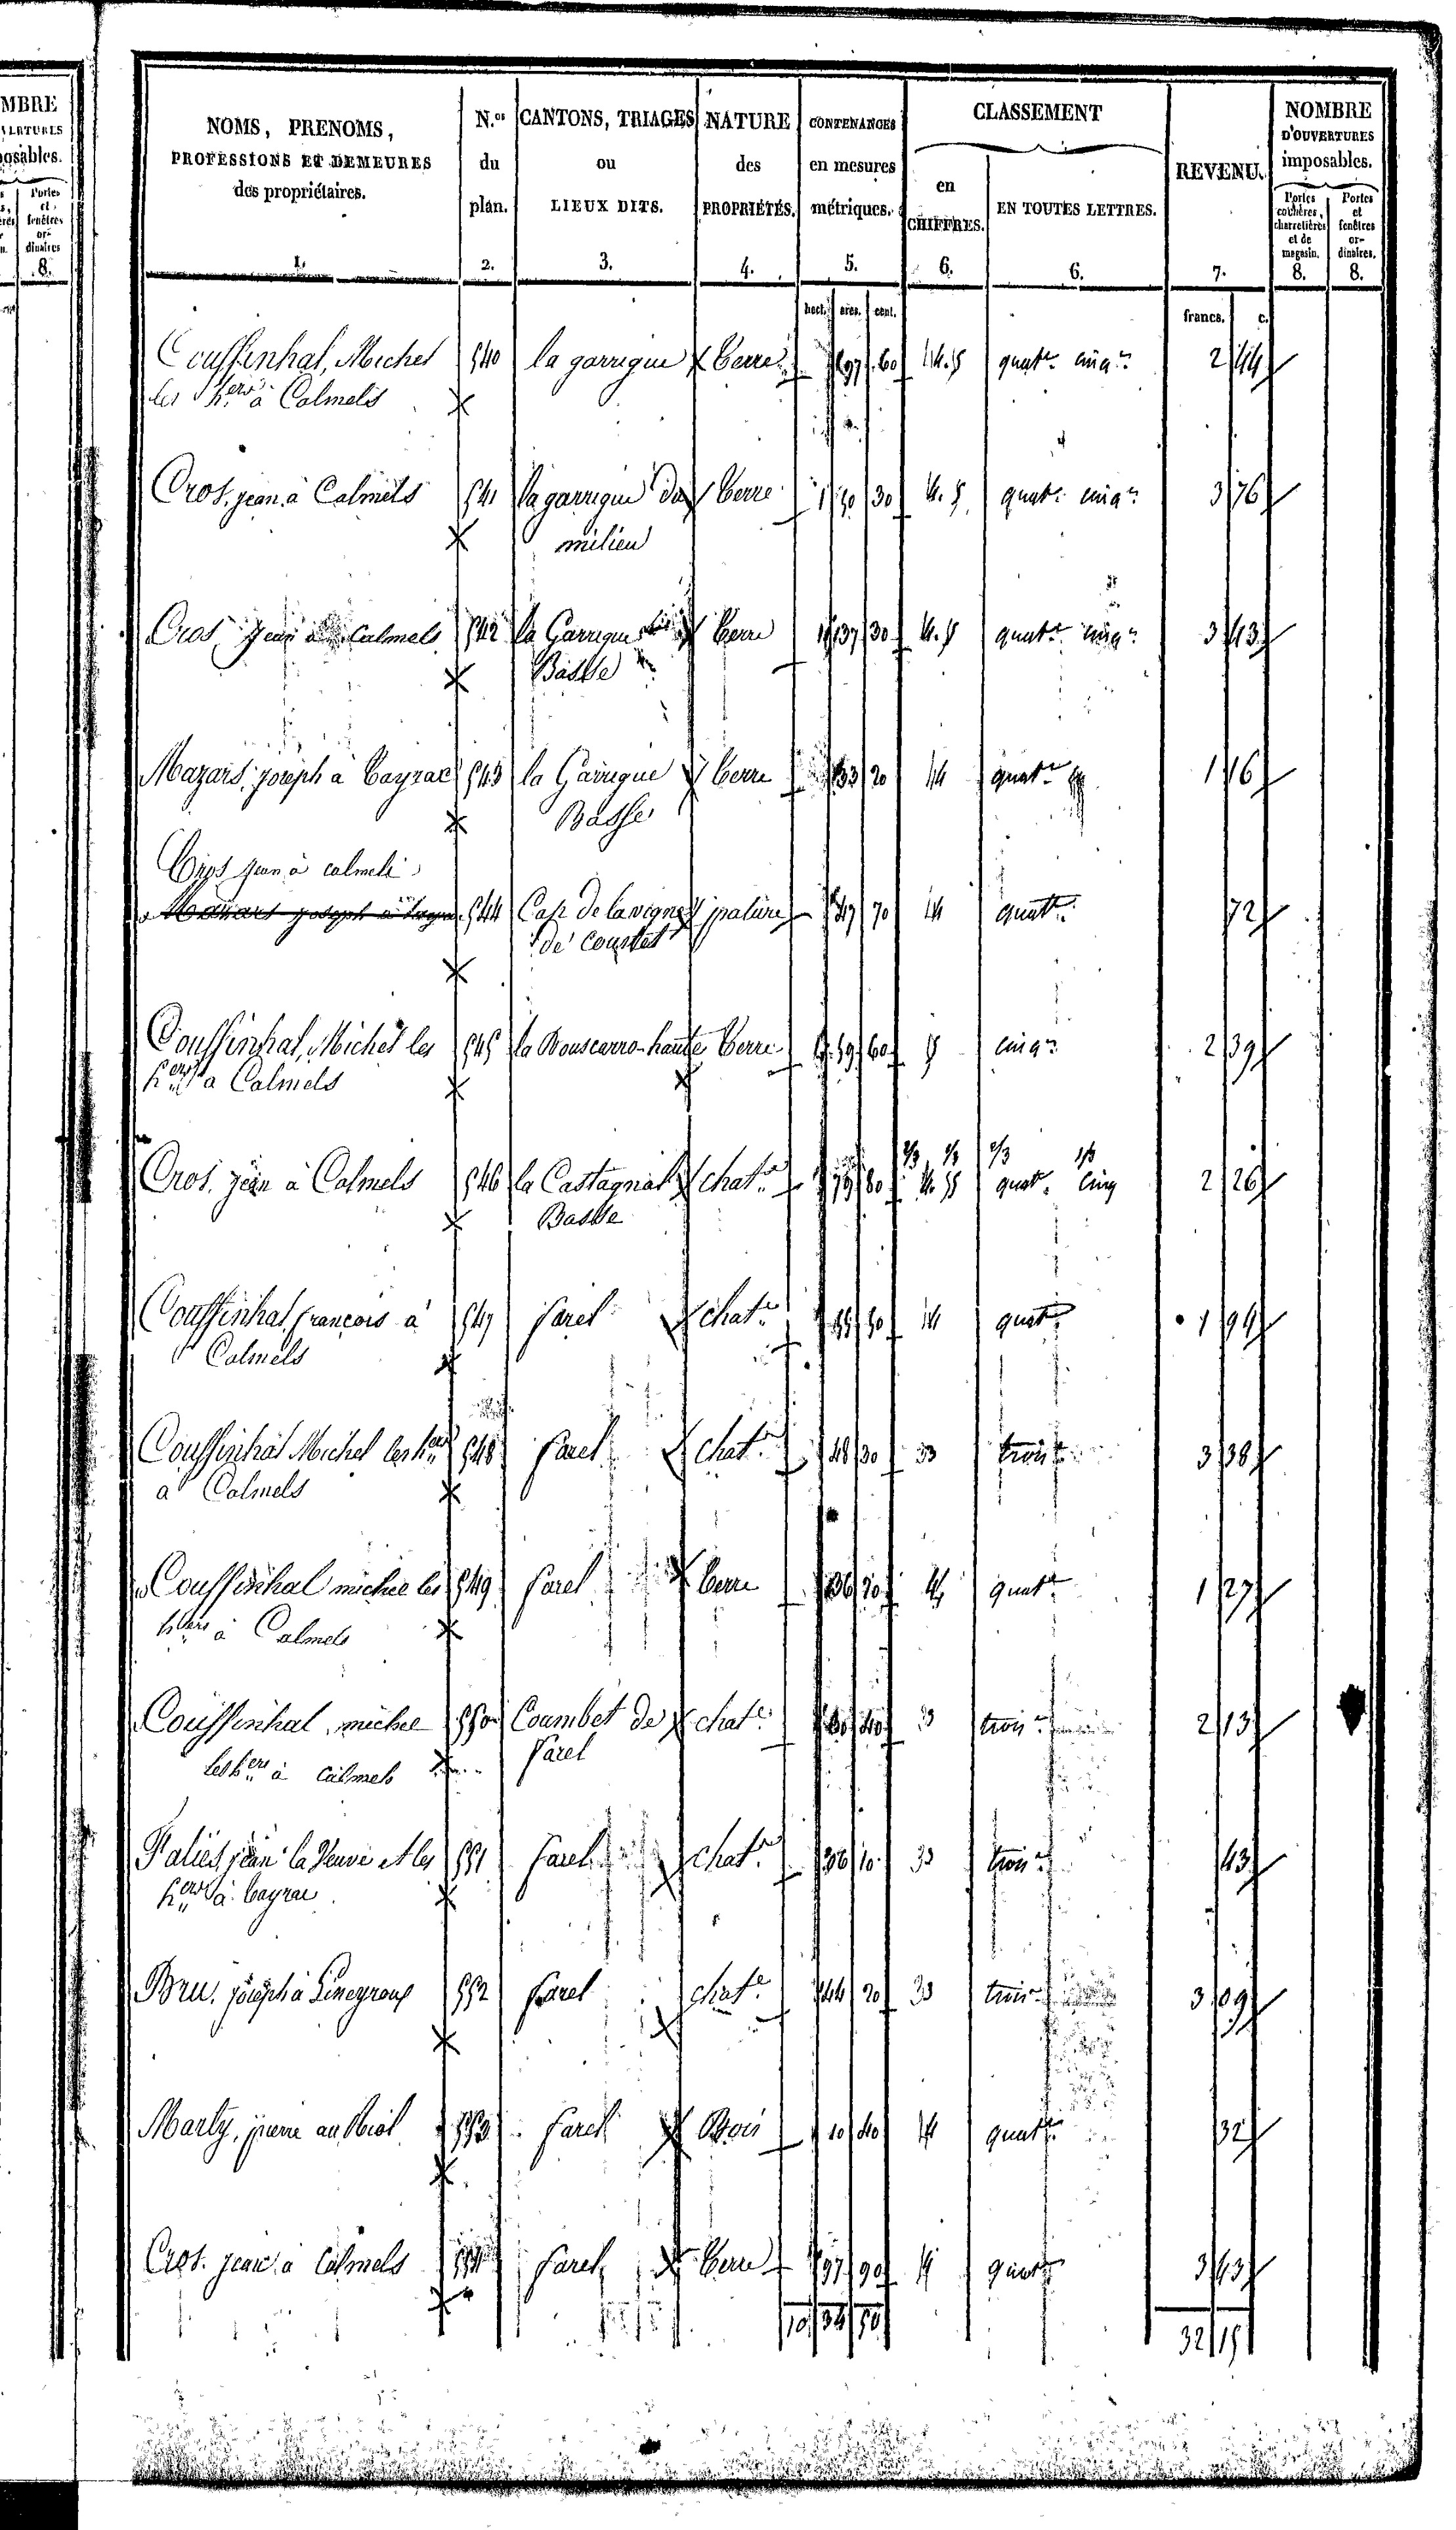 MBRE
posables.
8.
NOMS, PRENOMS,
PROFESSIONS ET DEMEURES
des propriétaires.
1.
N.os
du
plan.
2.
CANTONS, TRIAGES
ou
LIEUX DITS.
3.
NATURE
des
PROPRIÉTÉS.
4.
CONTENANCES
en mesures
métriques.
5.
CLASSEMENT
en
CHIFFRES.
6.
EN TOUTES LETTRES.
6.
REVENU.
7.
NOMBRE
D'OUVERTURES
imposables.
Portes cochères, charretières et de magasin.
8.
Portes et fenêtres ordinaires.
8.
hect. ares. cent.
francs. c.
Couffinhal, Michel 540 la garrigue terre 97 60 4.5 quatre cinq 2 44
les hers à Calmels
Cros, jean à Calmels 541 la garrigue du terre 1 50 30 4.5 quatre cinq 3 76
milieu
Cros, jean à Calmels 542 la Garrigue terre 1 37 30 4.5 quatre cinq 3 43
Basse
Mazars, joseph à Cayrac 543 la Garrigue terre 33 20 4 quatre 1 16
Basse
Cros jean à calmels
Mazars joseph à 544 Cap de la vigne pature 47 70 4 quatre 72
de Coustet
Couffinhal, Michel les 545 la Bouscarro-haute terre 1 59 60 5 cinq 2 39
hers à Calmels
2/3 1/3 2/3 1/3
Cros, jean à Calmels 546 la Castagnal chat.e 79 80 4. 5 quat. Cinq 2 26
Basse
Couffinhal, françois à 547 farel chat.e 55 50 4 quatre 1 94
Calmels
Couffinhal Michel les hers 548 farel chat.e 48 30 3 trois 3 38
à Calmels
Couffinhal michel les 549 farel terre 36 20 4 quatre 1 27
hers à Calmels
Couffinhal, michel 550 Coumbet de chat.e 30 40 3 trois 2 13
les hers à Calmels farel
Faliés, jean la Veuve et les 551 farel chat.e 06 10 3 trois 43
hers à Cayrac
Bru, joseph à 552 farel chat.e 44 20 3 trois 3 09
Marty, pierre au Riol 553 farel Bois 10 40 4 quatre 32
Cros, jean à Calmels 554 farel terre 97 90 4 quatre 3 43
10 34 50
32 15